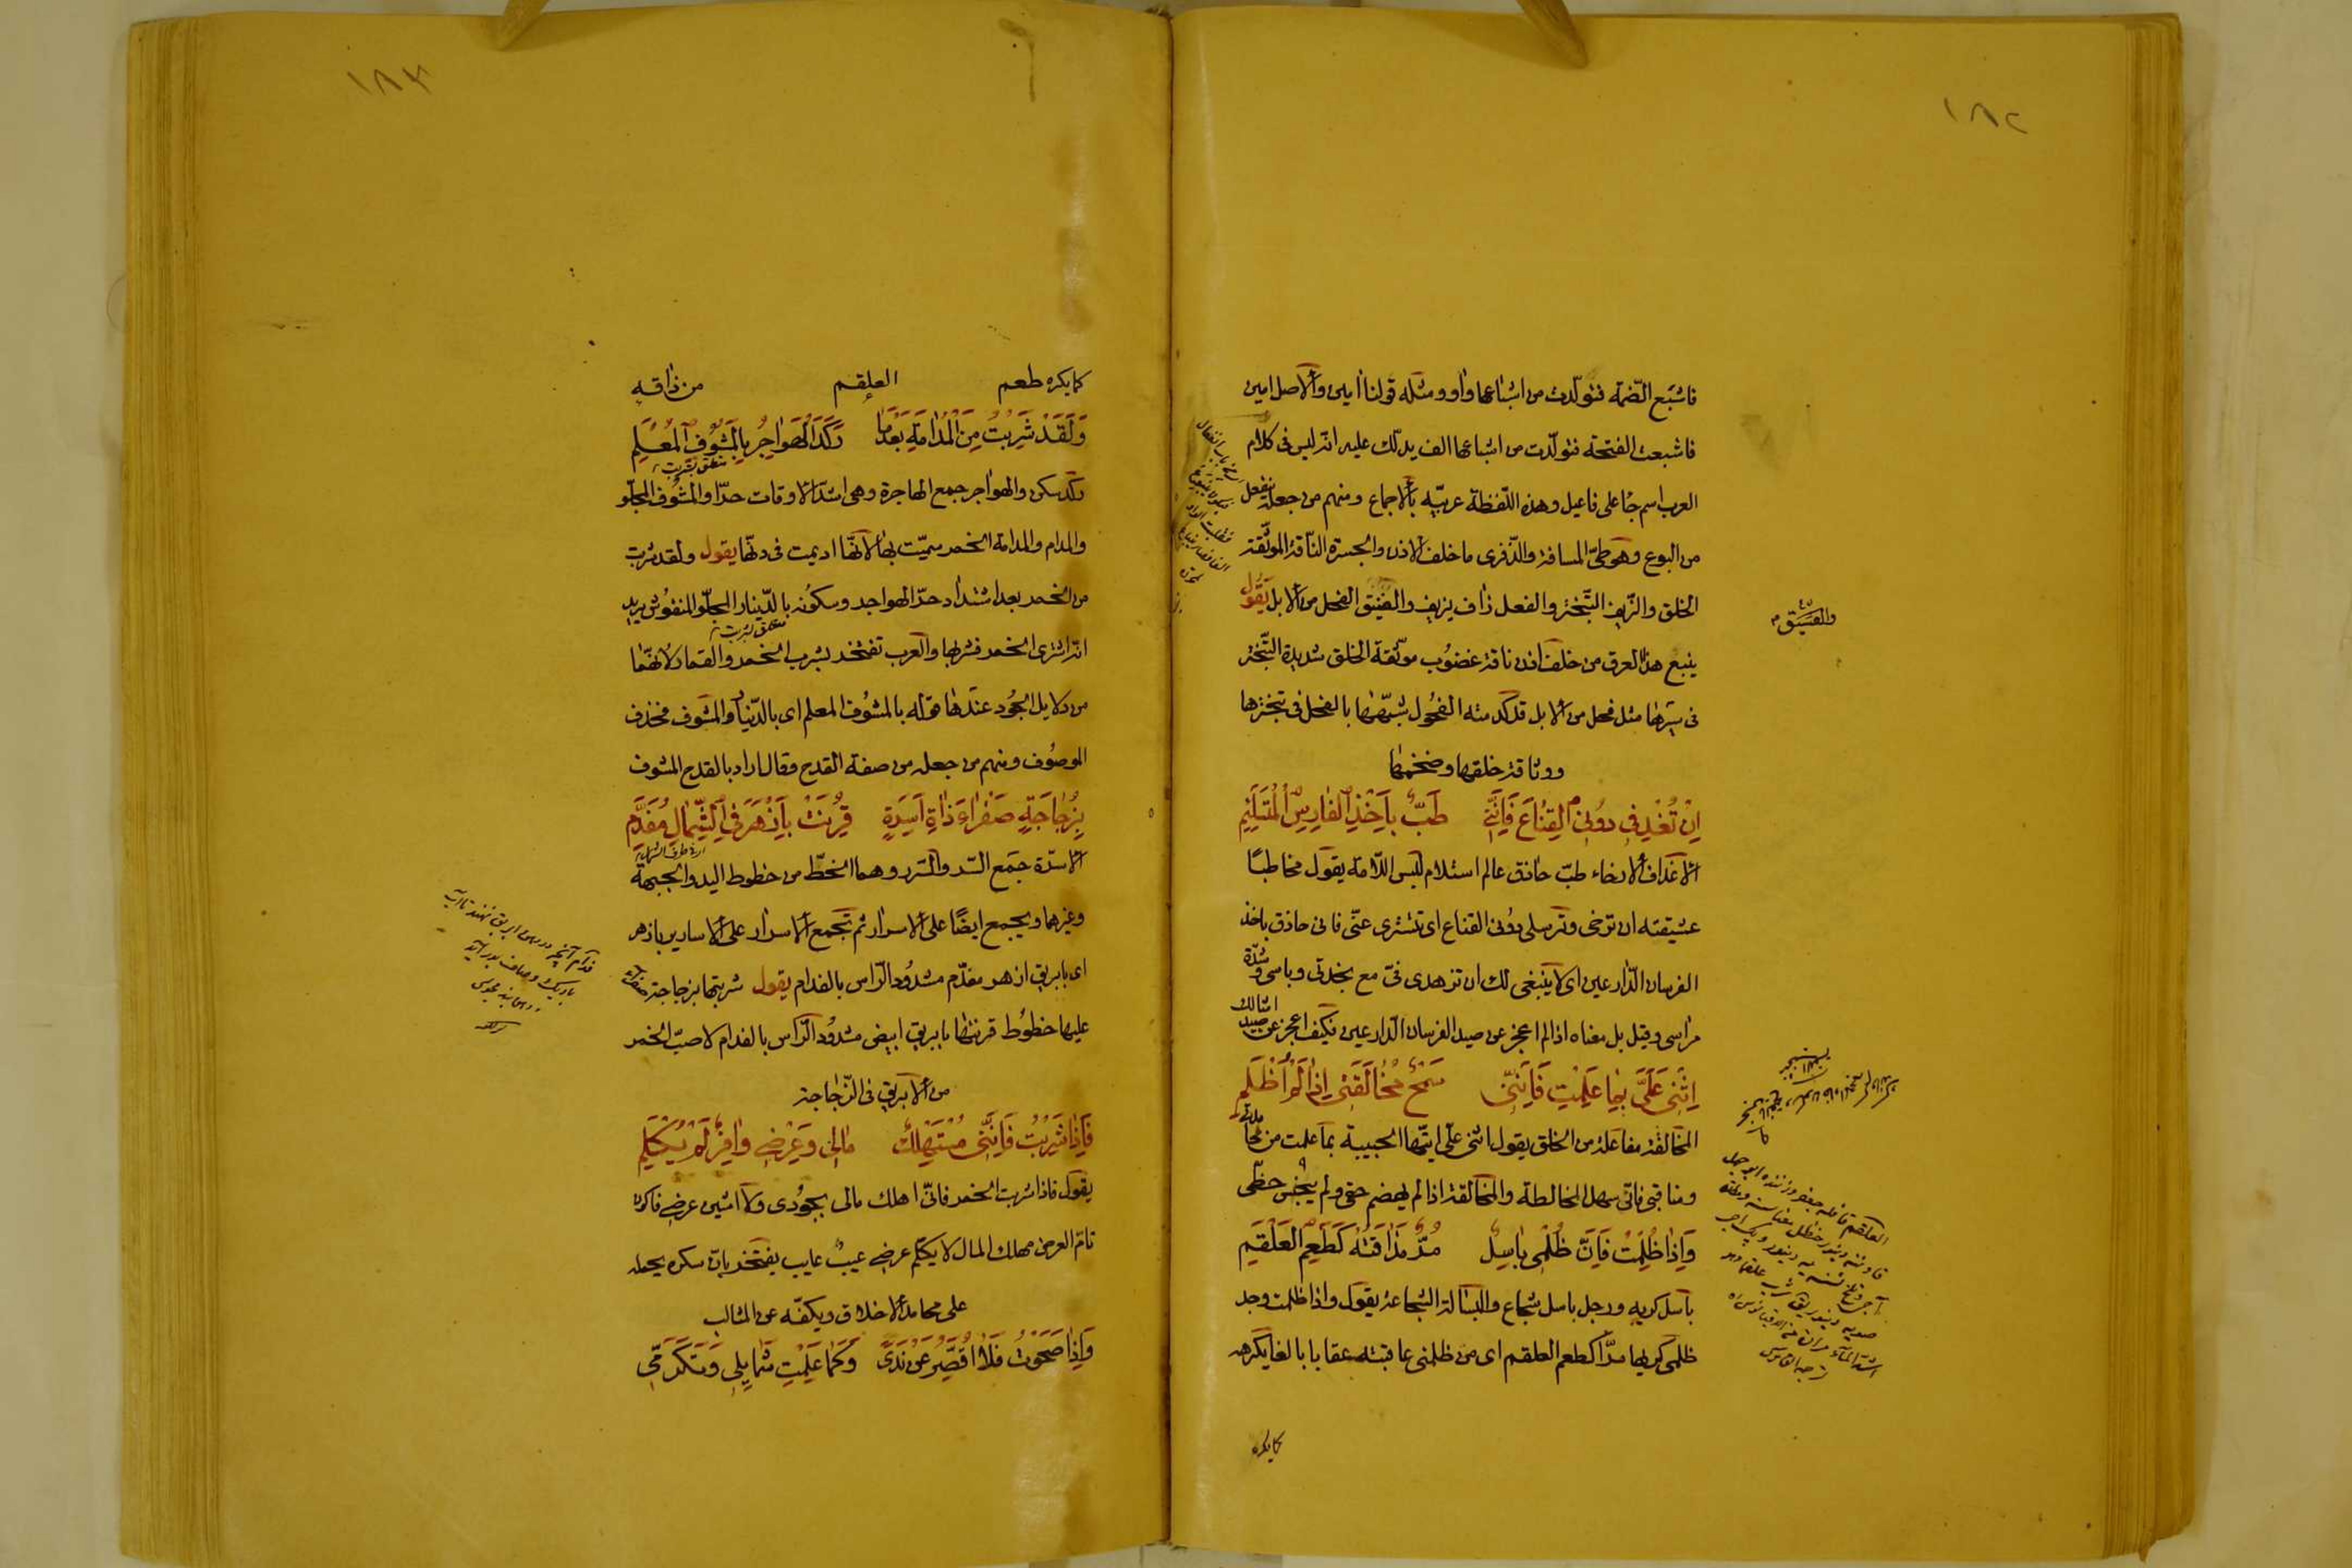 ١٨٢
فاشبع الضمّة فتولّدت من اشباعها واو ومثله قولنا آمين والاصل امين
فاشبعت الفتحة فتولّدت من اشباعها الف يدلّك عليه انه ليس فى كلام
العرب اسم جاء على فاعيل وهذه اللّفظة عربيّه بالاجماع ومنهم من جعله ينفعل
من البوع وهو طىّ المسافة والذّفرى ما خلف الاذن والجسرة النّاقة الموثّقة
الخلق والزّيف التّبختر والفعل زاف يزيف والفنيق الفحل من الابل يَقُولُ
ينبع هذا العرق من خلف اذن ناقة غضُوب موثّقة الخلق شديدة التّبختر
فى سيرها مثل فحل من الابل قد كدمته الفحُول شبّهها بالفحل فى تبخترها
ووثاقة خلقها وضخمها
اِنْ تُغْدِفى دوُنى القِنٰاعَ فَاِنَّنى طَبٌّ بِاَخْذِ الفٰارِسِ المُسْتَلْئِمِ
الاغداف الارخاء طبّ حاذق عالم استلام لبس اللّامة يقول مخاطبًا
عشيقته ان ترخى وترسلى دونى القناع اى تتسترى عنّى فانى حاذق باخذ
الفرسان الدّارعين اى لا ينبغى لك ان تزهدى فىّ مع نجدتى وباسى وشدّة
مراسى وقيل بل معناه اذا لم اعجز عن صيد الفرسان الدّارعين فكيف اعجز عن صيد امثالك
اِثْنى عَلَىَّ بِمٰا عَلِمْتِ فَاِنَّنى سَمْحٌ مُخٰالَقَتى اِذٰا لَمْ اُظْلَمِ
المخالقة مفاعلة من الخلق يقول اثنى علّى ايتها الحبيبة بما علمت من محامدى
ومناقبى فانى سهل المخالطة والمخالقة اذا لم يهضم حقى ولم يبخس حظّى
وَاِذٰا ظُلِمْتُ فَاِنَّ ظُلْمى بٰاسِلٌ مُرٌّ مَذٰاقَتُهُ كَطَعْمِ العَلْقَمِ
باسل كريه ورجل باسل شجاع والبسالة الشجاعة يقول واذا ظلمت وجد
ظلمى كريها مرّا كطعم العلقم اى من ظلمنى عاقبته عقابا بالغا يكرهه
كما يكره
١٨٣
كما يكره طعم العلقم من ذاقه
وَلَقَدْ شَرِبْتُ مِنَ الْمُدٰامَةِ بَعْدَمٰا رَكَدَ الْهَوٰاجِرُ بِالْمَشُوفِ الْمُعْلَمِ
ركد سكن والهواجر جمع الهاجرة وهى اشدّ الاوقات حرّا والمشوف المجلّو
والمدام والمدامة الخمر سميّت بها لانّها اديمت فى دنّها يقول ولقد شربت
من الخمر بعد اشتداد حرّ الهواجر وسكونه بالدّينار المجلّو المنقوش يريد
انّه اشترى الخمر فشربها والعرب تفتخر بشرب الخمر والقمار لانّهما
من دلايل الجُود عندها قوله بالمشوف المعلم اى بالدّينار المشوف فحذف
الموصُوف ومنهم من جعله من صفة القدح وقال اراد بالقدح المشوف
بِزُجٰاجَةٍ صَفْرٰاءَ ذٰاتِ اَسِرَّةٍ قُرِنَتْ بِاَزْهَرَ فِى الشِّمٰالِ مُفَدَّمِ
الاسرّة جمع السّر والسّرر وهما الخطّ من خطوط اليد والجبهة
وغيرهما ويجمع ايضًا على الاسرار ثم تجمع الاسرار على الاسارير بازهر
اى بابريق ازهر مفدّم مشدُود الرّاس بالفدام يقول شربتها بزجاجة صفراء
عليها خطُوط قرنتها بابريق ابيض مشدُود الرّاس بالفدام لاصبّ الخمر
من الابريق فى الزّجاجة
فَاِذٰا شَرِبْتُ فَاِنَّنى مُسْتَهْلِكٌ مٰالى وَعِرْضى وٰافِرٌ لَمْ يُكْلَمِ
يقول فاذا شربت الخمر فانّى اهلك مالى بجُودى ولا اشين عرضى فاكون
تامّ العرض مهلك المال لا يكلم عرضى عيبُ عايب يفتخر بانّ سكره يحمله
على محامد الاخلاق ويكفّه عن المثالب
وَاِذٰا صَحَوْتُ فَلٰا اُقَصِّرُ عَنْ نَدًى وَكَمٰا عَلِمْتِ شَمٰايِلى وَتَكَرُّمى